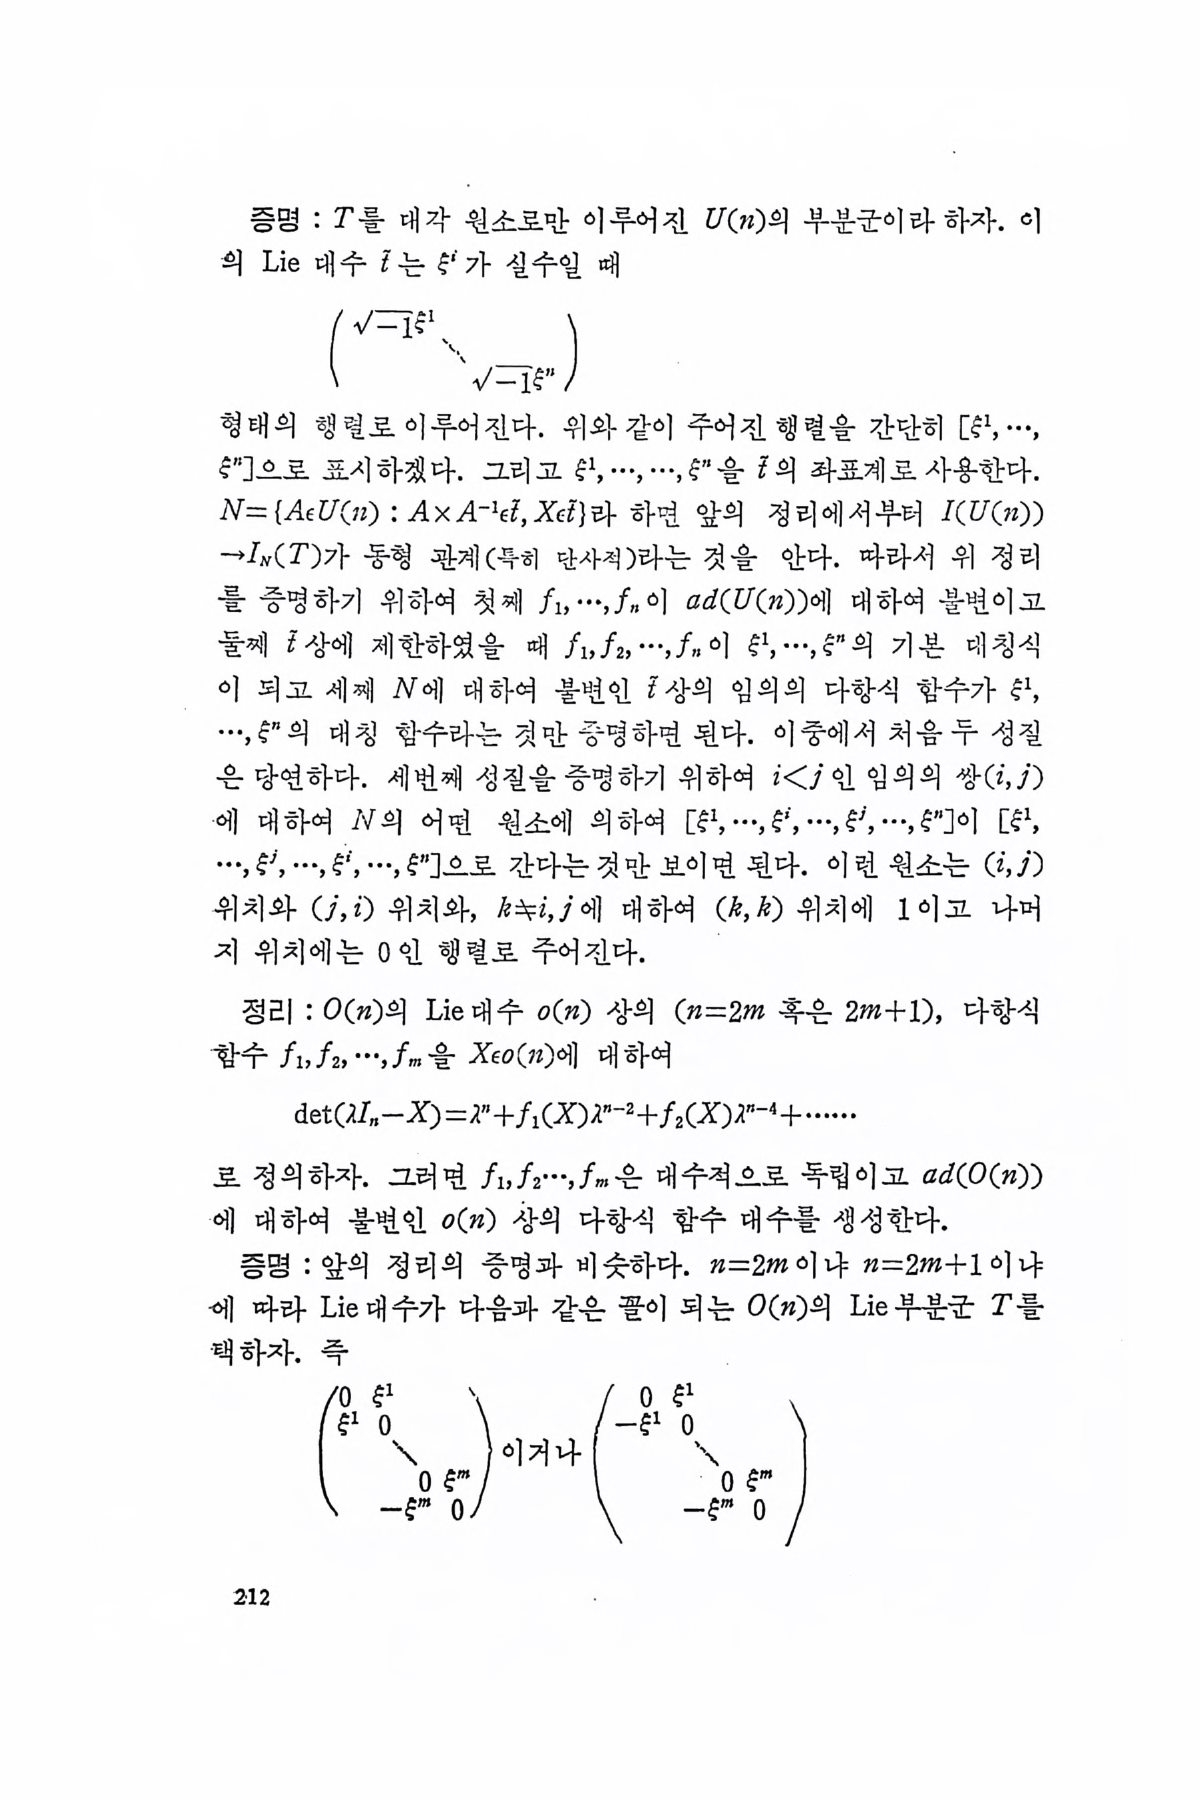 증명 : T를 대각 원소로만 이루어진 U(n)의 부분군이라 하자. 이
의 Lie 대수 t̃ 는 ξⁱ 가 실수일 때
( √-1ξ¹
⋱
√-1ξⁿ )
형태의 행렬로 이루어진다. 위와 같이 주어진 행렬을 간단히 [ξ¹, ⋯,
ξⁿ]으로 표시하겠다. 그리고 ξ¹, ⋯, ⋯, ξⁿ을 t̃ 의 좌표계로 사용한다.
N={AϵU(n) : A×A⁻¹ϵt̃, Xϵt̃}라 하면 앞의 정리에서부터 I(U(n))
→I_N(T)가 동형 관계(특히 단사적)라는 것을 안다. 따라서 위 정리
를 증명하기 위하여 첫째 f₁, ⋯, fₙ이 ad(U(n))에 대하여 불변이고
둘째 t̃ 상에 제한하였을 때 f₁, f₂, ⋯, fₙ이 ξ¹, ⋯, ξⁿ의 기본 대칭식
이 되고 세째 N에 대하여 불변인 t̃ 상의 임의의 다항식 함수가 ξ¹,
⋯, ξⁿ의 대칭 함수라는 것만 증명하면 된다. 이중에서 처음 두 성질
은 당연하다. 세번째 성질을 증명하기 위하여 i<j 인 임의의 쌍(i, j)
에 대하여 N의 어떤 원소에 의하여 [ξ¹, ⋯, ξⁱ, ⋯, ξʲ, ⋯, ξⁿ]이 [ξ¹,
⋯, ξʲ, ⋯, ξⁱ, ⋯, ξⁿ]으로 간다는 것만 보이면 된다. 이런 원소는 (i, j)
위치와 (j, i) 위치와, k≠i, j 에 대하여 (k, k) 위치에 1이고 나머
지 위치에는 0인 행렬로 주어진다.
정리 : O(n)의 Lie 대수 o(n) 상의 (n=2m 혹은 2m+1), 다항식
함수 f₁, f₂, ⋯, fₘ을 Xϵo(n)에 대하여
det(λIₙ-X)=λⁿ+f₁(X)λⁿ⁻²+f₂(X)λⁿ⁻⁴+⋯⋯
로 정의하자. 그러면 f₁, f₂⋯, fₘ은 대수적으로 독립이고 ad(O(n))
에 대하여 불변인 o(n) 상의 다항식 함수 대수를 생성한다.
증명 : 앞의 정리의 증명과 비슷하다. n=2m이냐 n=2m+1이냐
에 따라 Lie 대수가 다음과 같은 꼴이 되는 O(n)의 Lie 부분군 T를
택하자. 즉
( 0 ξ¹
ξ¹ 0
⋱
0 ξᵐ
-ξᵐ 0 )
이거나
( 0 ξ¹
-ξ¹ 0
⋱
0 ξᵐ
-ξᵐ 0 )
212